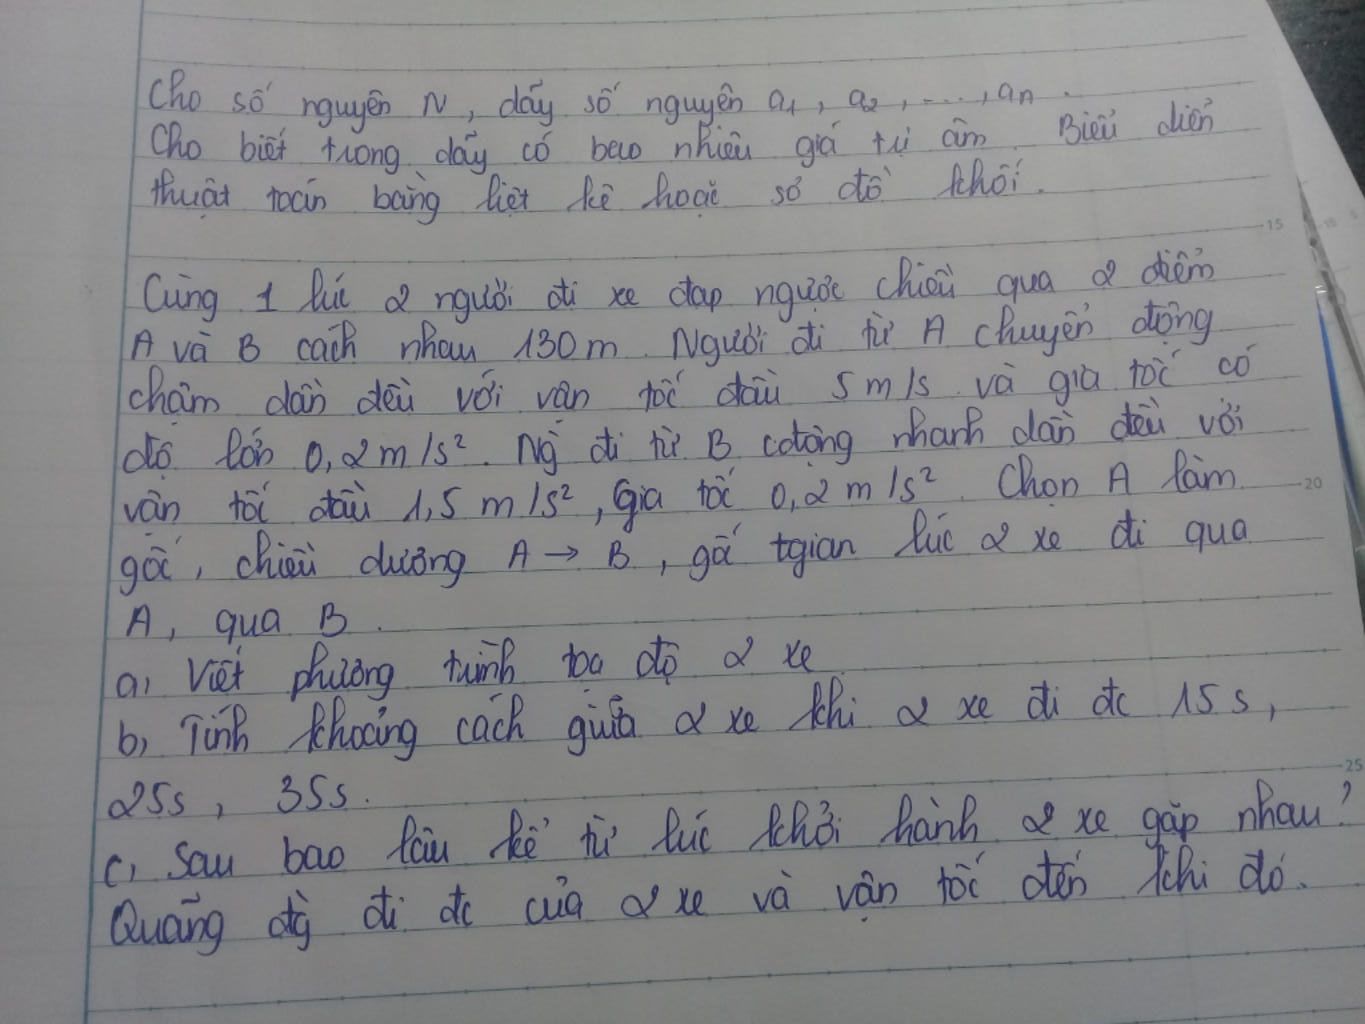 Cho số nguyên N, dãy số nguyên a1, a2, ..., an.
Cho biết trong dãy có bao nhiêu giá trị âm. Biểu diễn
thuật toán bằng liệt kê hoặc sơ đồ khối.
15
Cùng 1 lúc 2 người đi xe đạp ngược chiều qua 2 điểm
A và B cách nhau 130m. Người đi từ A chuyển động
chậm dần đều với vận tốc đầu 5m/s và gia tốc có
độ lớn 0,2m/s². Ng̀ đi từ B cđộng nhanh dần đều với
vận tốc đầu 1,5m/s², gia tốc 0,2m/s². Chọn A làm
20
gốc, chiều dương A → B, gố tgian lúc 2 xe đi qua
A, qua B.
a, Viết phương trình tọa độ 2 xe
b, Tính khoảng cách giữa 2 xe khi 2 xe đi đc 15s,
25s, 35s.
25
c, Sau bao lâu kể từ lúc khởi hành 2 xe gặp nhau?
Quãng đg̀ đi đc của 2 xe và vận tốc đến khi đó.